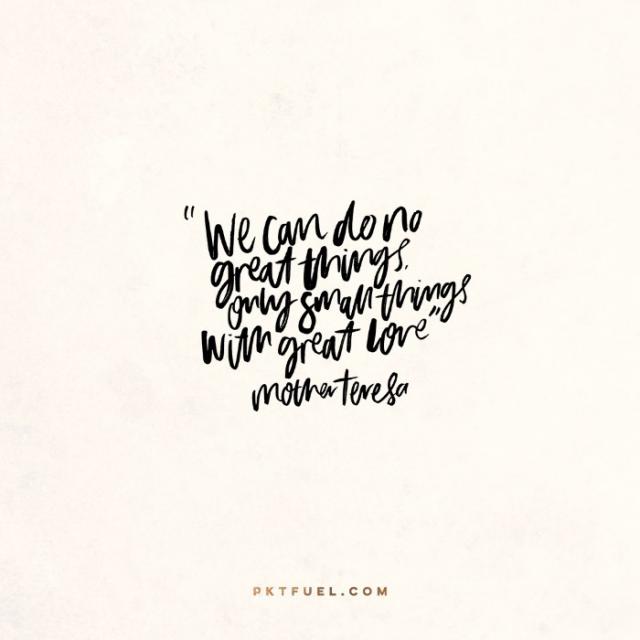 "We can do no
great things,
only small things
with great love"
mother teresa
PKTFUEL.COM